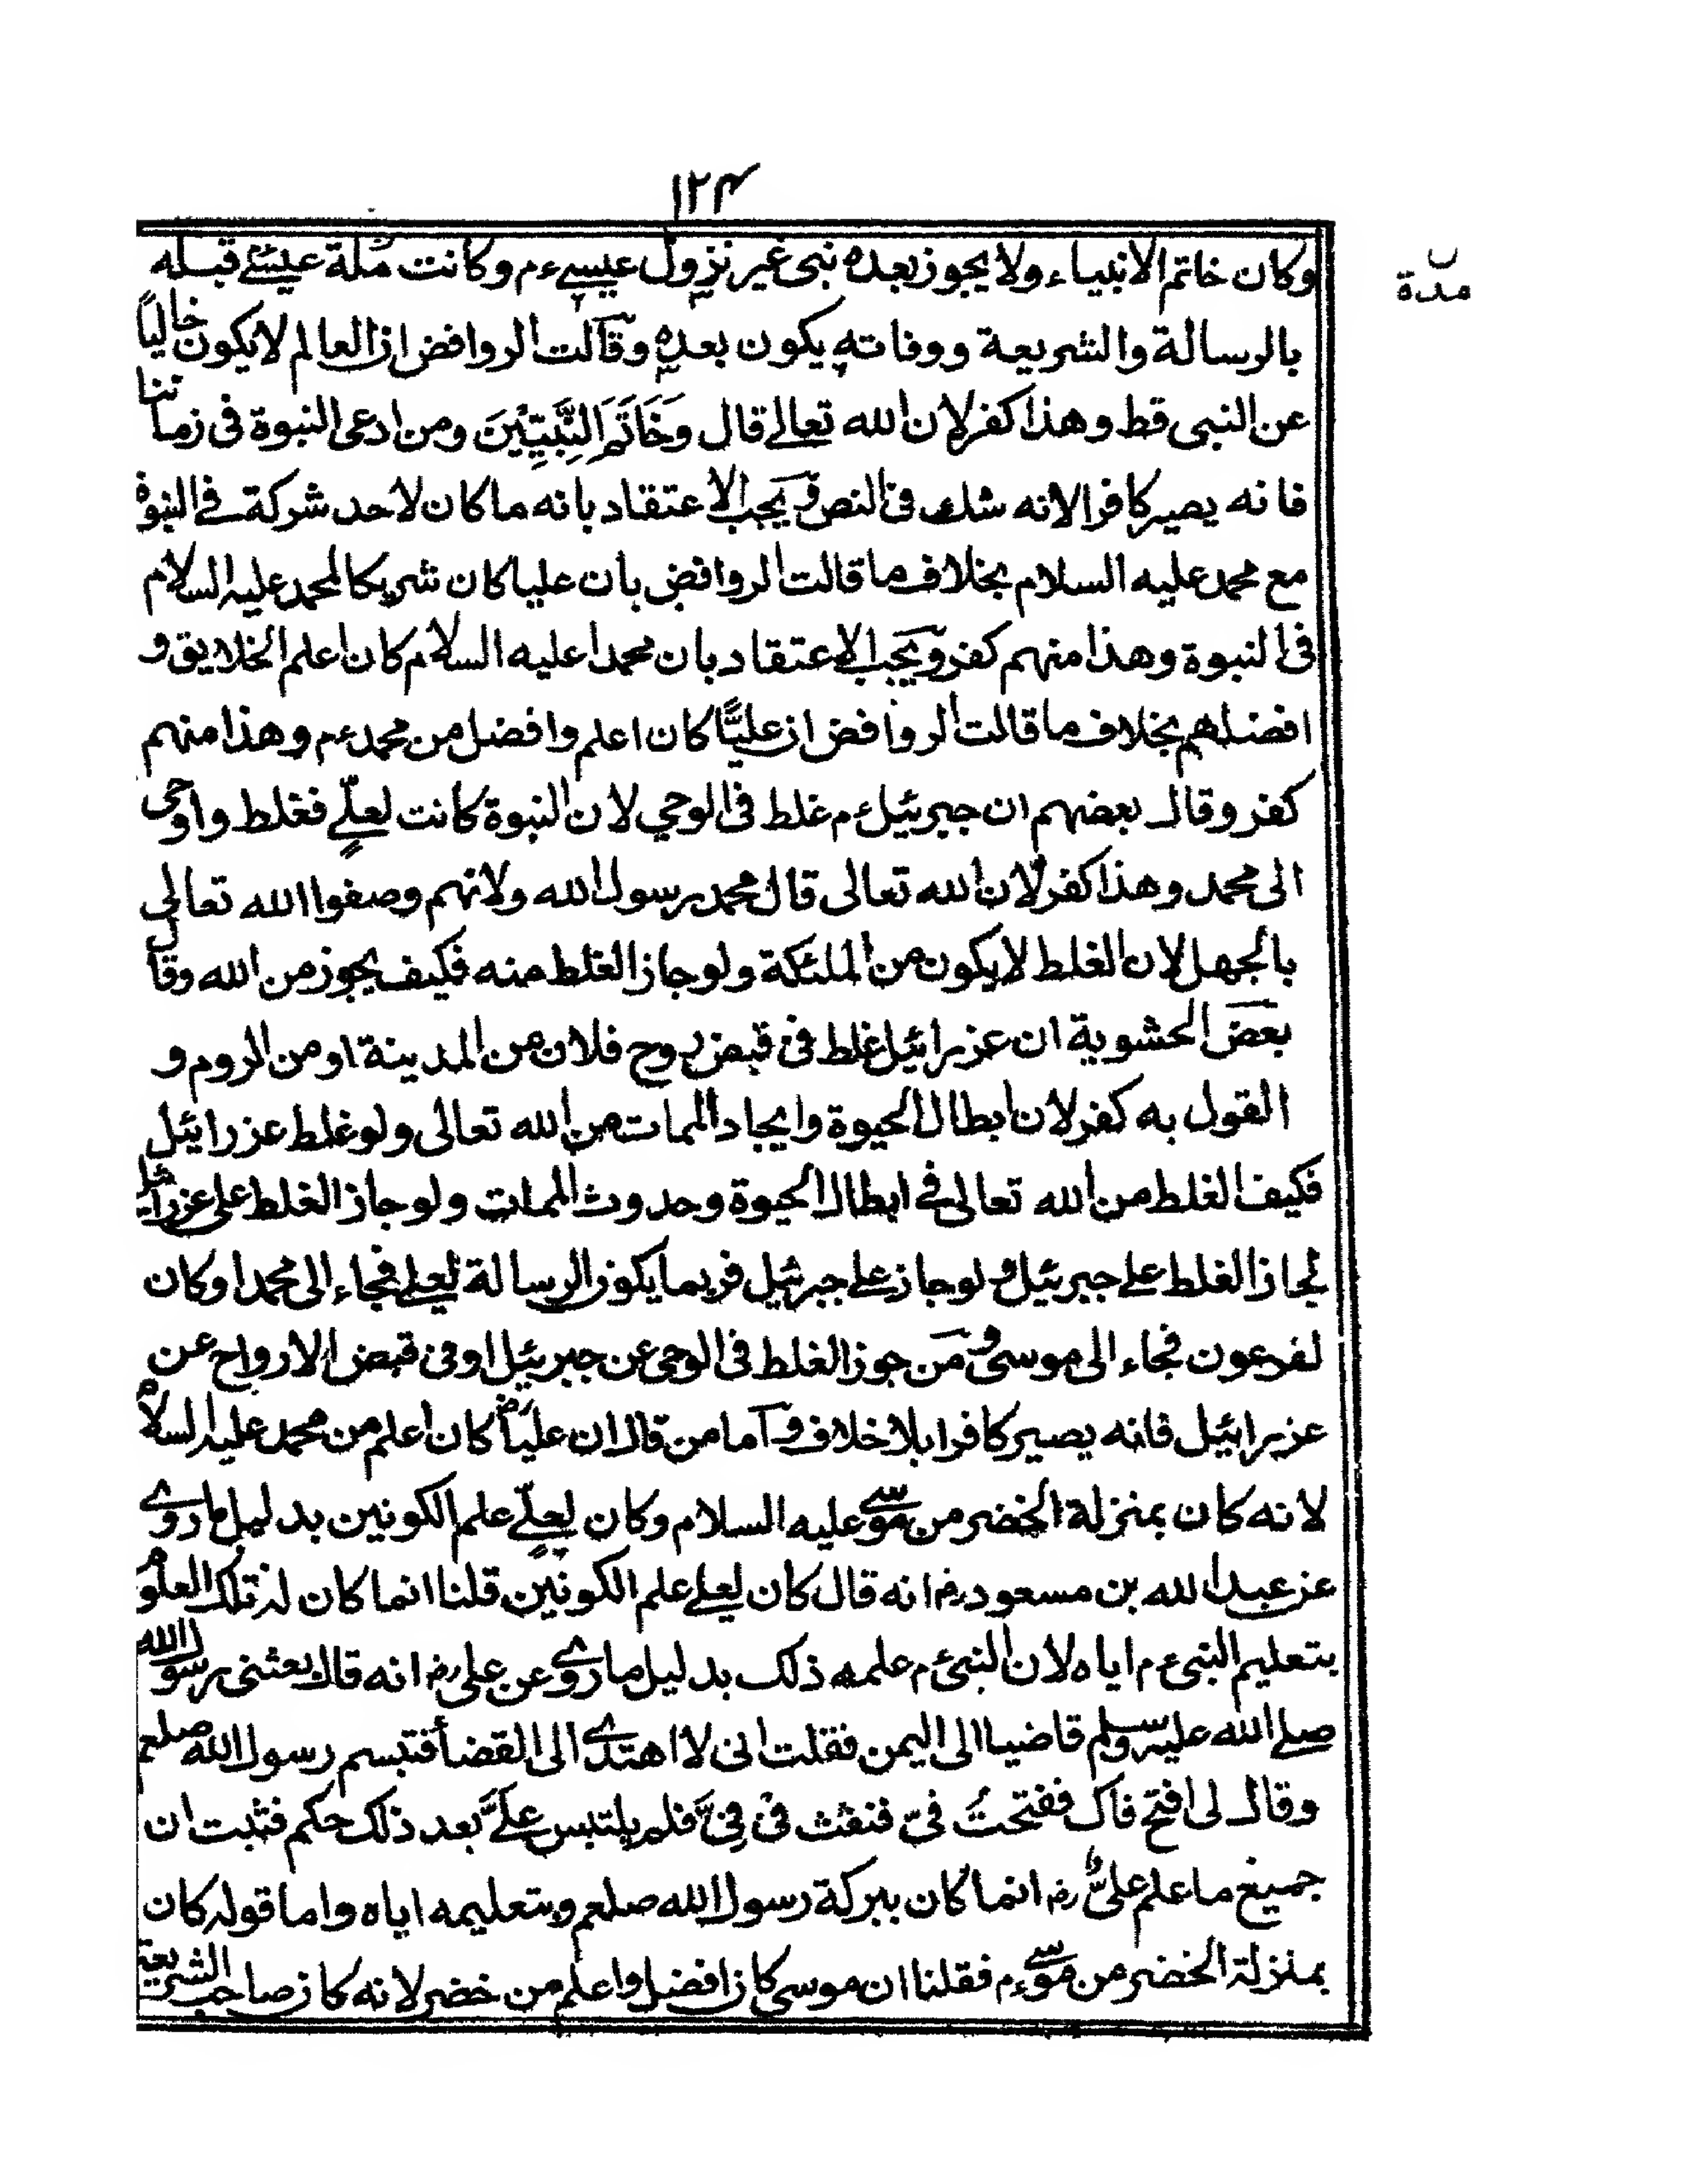 ۱۲۴
وكان خاتم الانبياء ولا يجوز بعده نبى غير نزول عيسے ءم وكانت ملة عيسےٰ قبله
مدة
بالرسالة والشريعة ووفاته يكون بعده وقالت الروافض ان العالم لا يكون خالياً
عن النبى قط وهذا كفر لان الله تعالے قال وَخَاتَمَ النَّبِيِّيْنَ ومن ادعى النبوة فى زماننا
فانه يصير كافرا لانه شك فى النص ويجب الاعتقاد بانه ما كان لاحد شركة فے النبوة
مع محمد عليه السلام بخلاف ما قالت الروافض بان عليا كان شريكا لمحمد عليه السلام
فى النبوة وهذا منهم كفر ويجب الاعتقاد بان محمدا عليه السلام كان اعلم الخلايق و
افضلهم بخلاف ما قالت الروافض ان عليًّا كان اعلم وافضل من محمد ءم وهذا منهم
كفر وقال بعضهم ان جبرئيل ءم غلط فى الوحي لان النبوة كانت لعلّےٍ فغلط واوحى
الى محمد وهذا كفر لان الله تعالى قال محمد رسول الله ولانهم وصفوا الله تعالى
بالجهل لان الغلط لا يكون من الملئكة ولو جاز الغلط منه فكيف يجوز من الله وقال
بعض الحشوية ان عزرائيل غلط فى قبض روح فلان من المدينة او من الروم و
القول به كفر لان ابطال الحيوة وايجاد الممات من الله تعالى ولو غلط عزرائيل
فكيف الغلط من الله تعالى فے ابطال الحيوة وحدوث الممات ولو جاز الغلط على عزرائيل
لجاز الغلط علے جبرئيل ولو جاز علے جبرئيل فربما يكون الرسالة لعلے فجاء الى محمد اوكان
لفرعون فجاء الى موسى ومن جوز الغلط فى الوحى عن جبرئيل او فى قبض الارواح عن
عزرائيل فانه يصير كافرا بلا خلاف واما من قال ان علياً رض كان اعلم من محمد عليه السلام
لانه كان بمنزلة الخضر من موسے عليه السلام وكان لعلّےٍ علم الكونين بدليل ما روے
عن عبد الله بن مسعود رض انه قال كان لعلے علم الكونين قلنا انما كان له تلك العلوم
بتعليم النبى ءم اياه لان النبى ءم علمه ذلك بدليل ما روے عن على رض انه قال بعثنى رسول الله
صلے الله عليه وسلم قاضيا الى اليمن فقلت انى لا اهتدے الى القضأ فتبسم رسول الله صلعم
وقال لى افتح فاك ففتحتُ فىّ فنفث فى فِىَّ فلم يلتبس علےَّ بعد ذلك حكم فثبت ان
جميع ما علم علىٌّ رض انما كان ببركة رسول الله صلعم وبتعليمه اياه واما قوله كان
بمنزلة الخضر من موسے ءم فقلنا ان موسى كان افضل واعلم من خضر لانه كان صاحب الشريعة